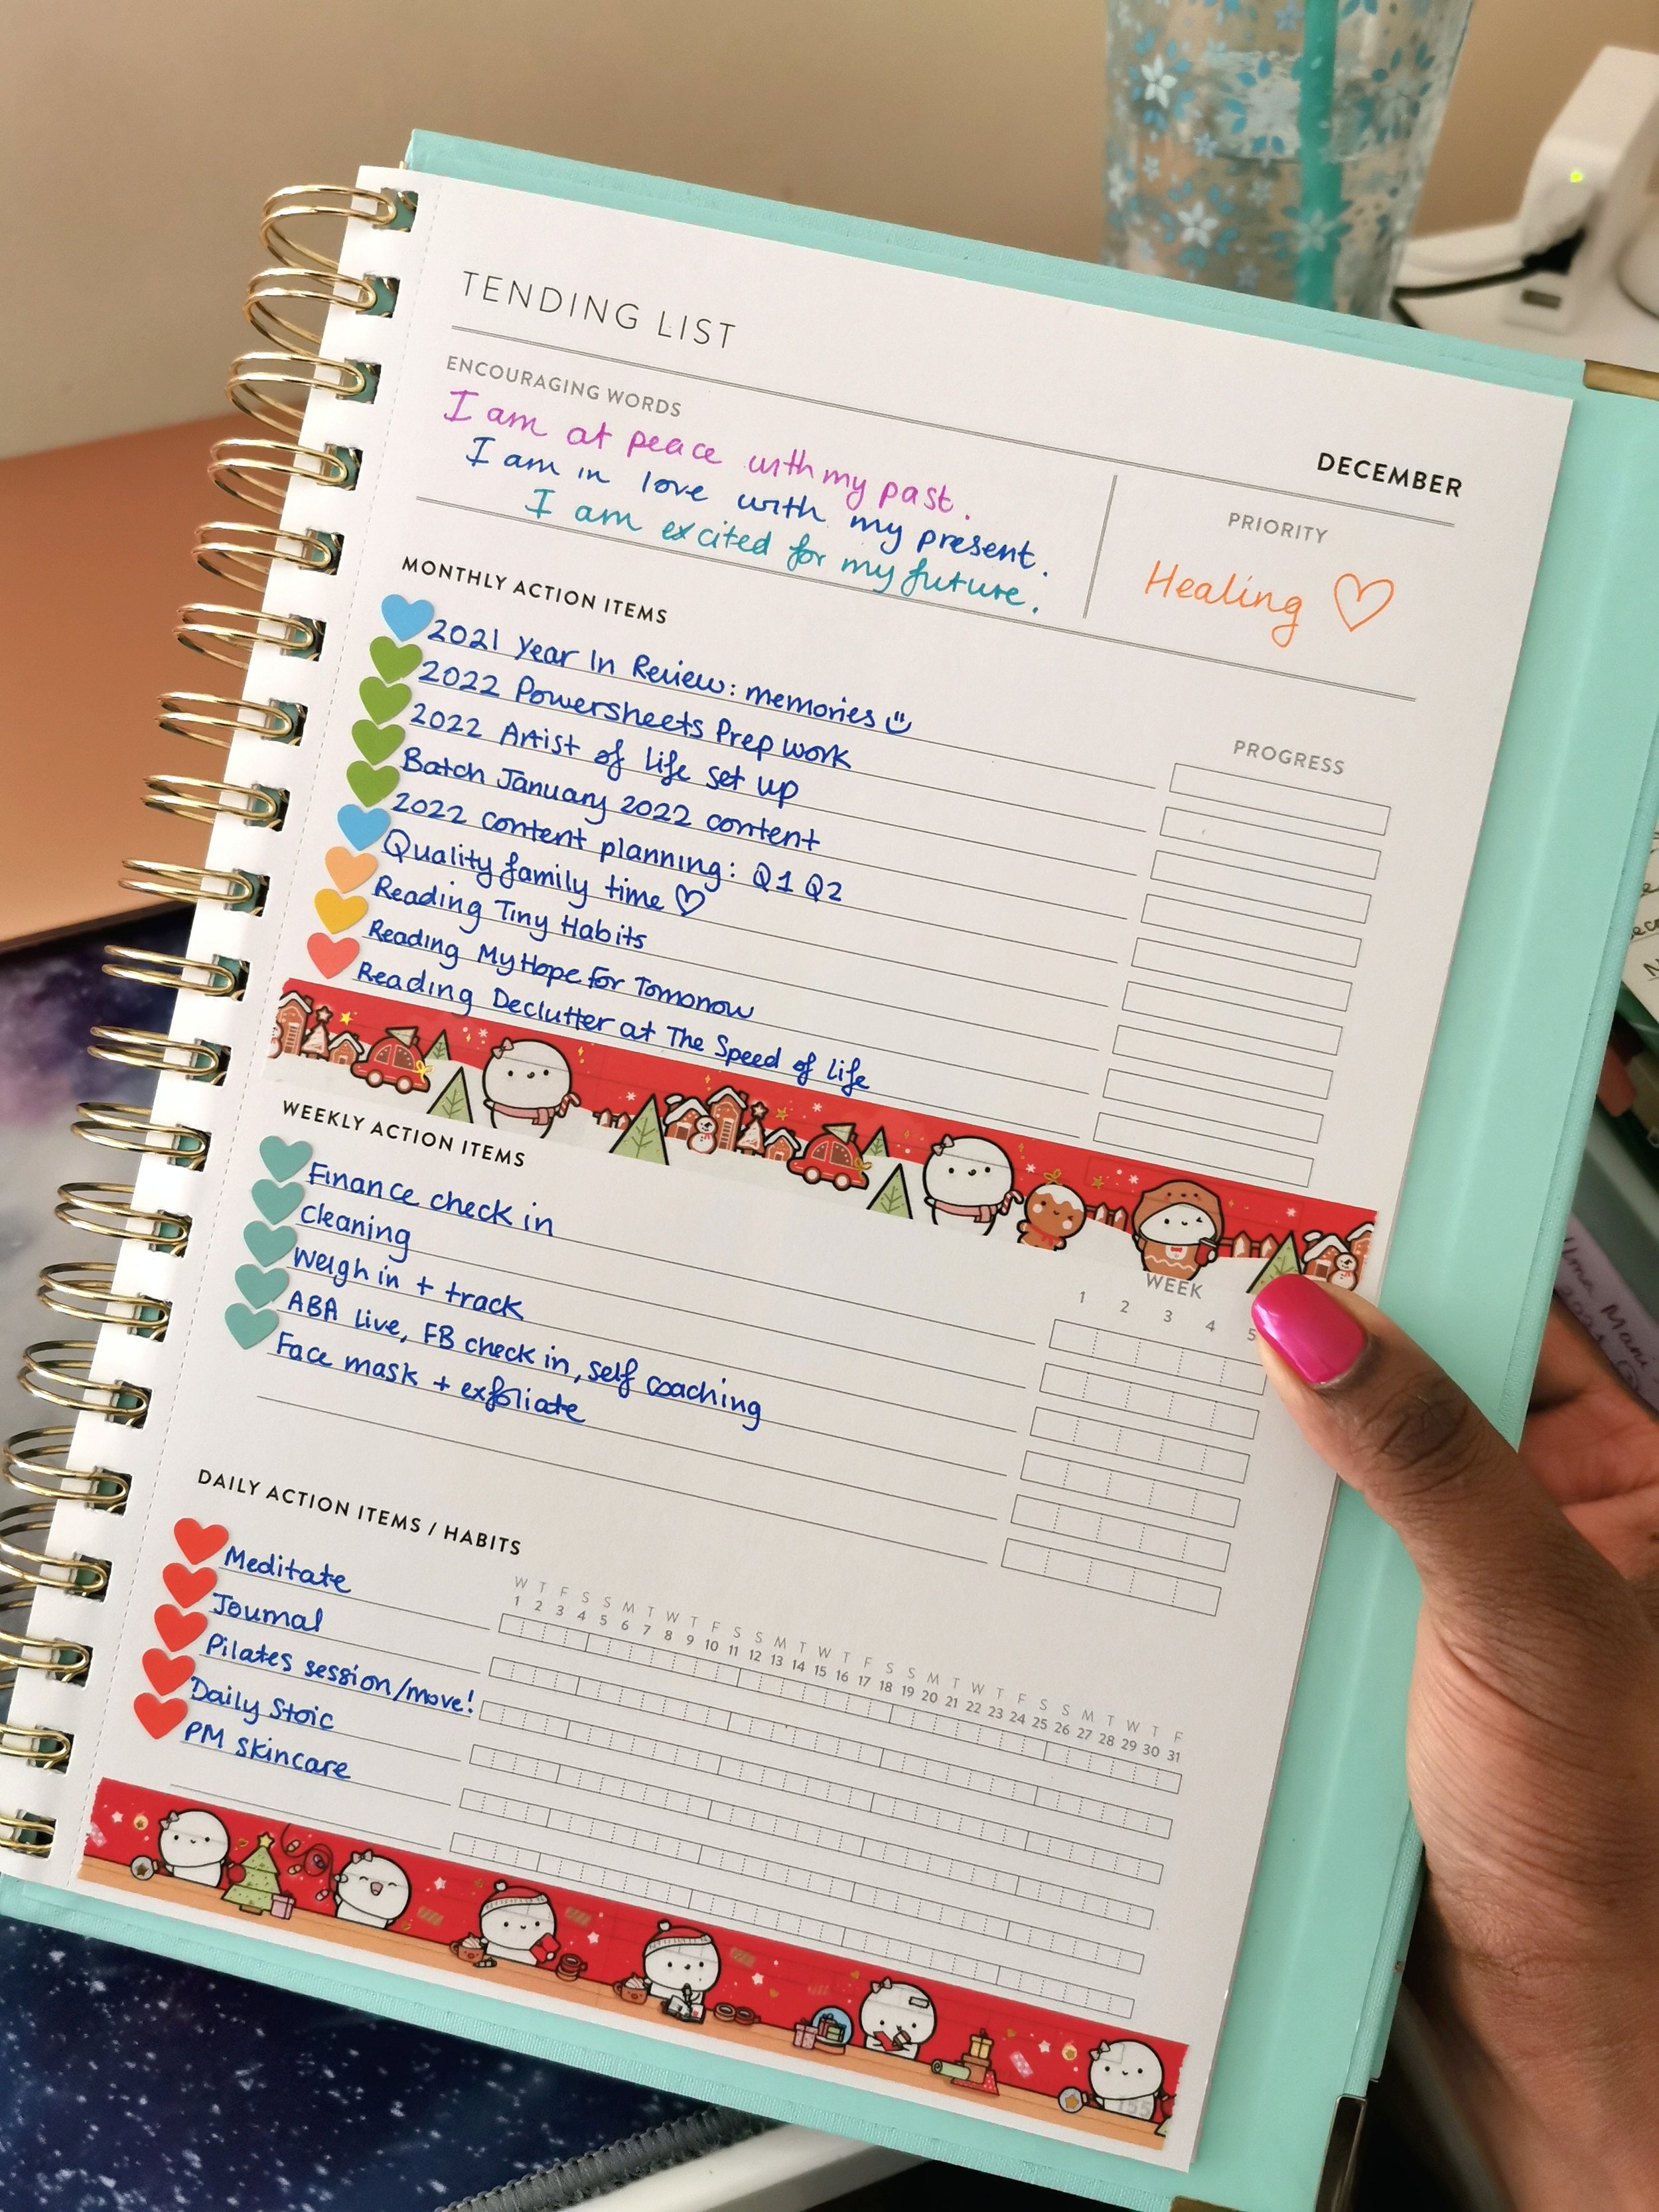 TENDING LIST
DECEMBER
ENCOURAGING WORDS
I am at peace with my past.
I am in love with my present.
I am excited for my future.
PRIORITY
Healing
MONTHLY ACTION ITEMS
PROGRESS
2021 Year In Review: memories
2022 Powersheets Prep work
2022 Artist of life set up
Batch January 2022 content
2022 content planning: Q1 Q2
Quality family time
Reading Tiny Habits
Reading My Hope For Tomorrow
Reading Declutter at The Speed of life
WEEKLY ACTION ITEMS
WEEK
1 2 3 4 5
Finance check in
Cleaning
Weigh in + track
ABA live, FB check in, self coaching
Face mask + exfoliate
DAILY ACTION ITEMS / HABITS
W T F S S M T W T F S S M T W T F S S M T W T F S S M T W T F
1 2 3 4 5 6 7 8 9 10 11 12 13 14 15 16 17 18 19 20 21 22 23 24 25 26 27 28 29 30 31
Meditate
Journal
Pilates session/move!
Daily Stoic
PM skincare
155